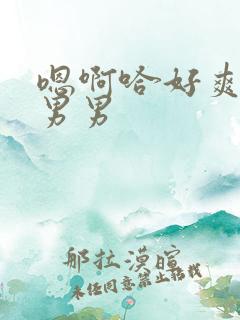 嗯啊哈好爽
男男
那拉漠暄
未经同意禁止转载